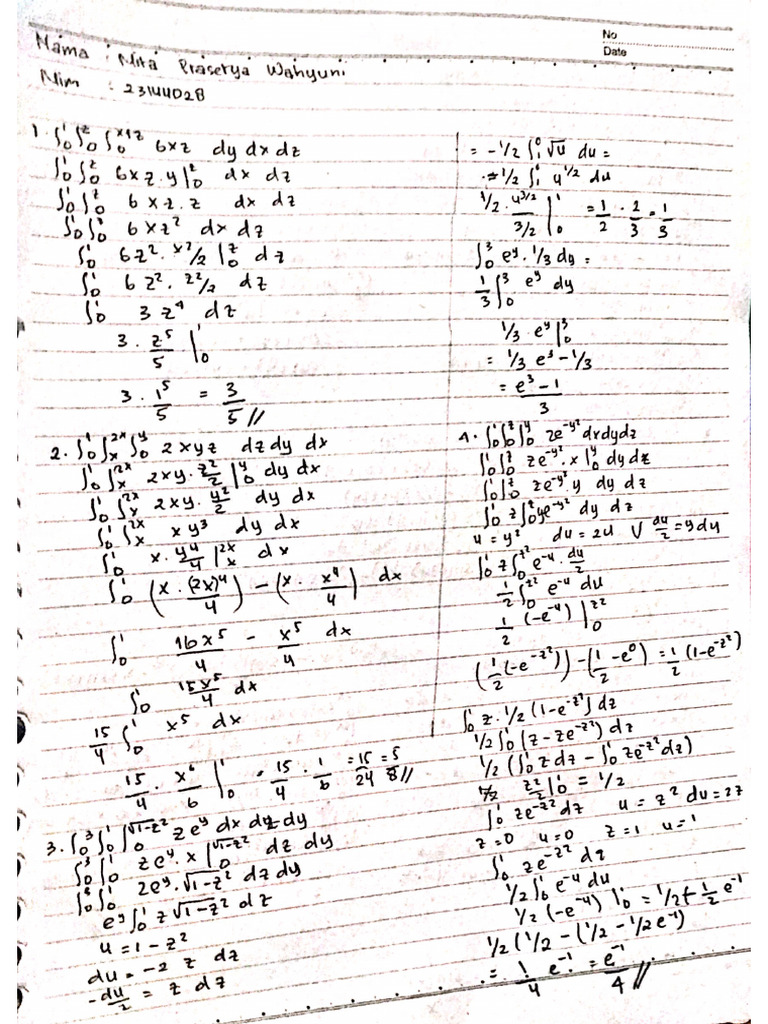 No
Date
Nama : Mita Prasetya Wahyuni
Nim : 23144028
1. ∫₀¹∫₀ᶻ∫₀ˣ⁺ᶻ 6xz dy dx dz
∫₀¹∫₀ᶻ 6xz.y|₀ᶻ dx dz
∫₀¹∫₀ᶻ 6xz.z dx dz
∫₀¹∫₀ᶻ 6xz² dx dz
∫₀¹ 6z².x²/2|₀ᶻ dz
∫₀¹ 6z².z²/2 dz
∫₀¹ 3z⁴ dz
3.z⁵/5|₀¹
3.1⁵/5 = 3/5//
2. ∫₀¹∫ₓ²ˣ∫₀ʸ 2xyz dz dy dx
∫₀¹∫ₓ²ˣ 2xy.z²/2|₀ʸ dy dx
∫₀¹∫ₓ²ˣ 2xy.y²/2 dy dx
∫₀¹∫ₓ²ˣ xy³ dy dx
∫₀¹ x.y⁴/4|ₓ²ˣ dx
∫₀¹ (x.(2x)⁴/4) - (x.x⁴/4) dx
∫₀¹ 16x⁵/4 - x⁵/4 dx
∫₀¹ 15x⁵/4 dx
15/4 ∫₀¹ x⁵ dx
15/4 . x⁶/6|₀¹ = 15/4 . 1/6 = 15/24 = 5/8//
3. ∫₀³∫₀¹∫₀^√(1-z²) zeʸ dx dz dy
∫₀³∫₀¹ zeʸ.x|₀^√(1-z²) dz dy
∫₀³∫₀¹ zeʸ.√(1-z²) dz dy
eʸ∫₀¹ z√(1-z²) dz
u = 1-z²
du = -2 z dz
-du/2 = z dz
= -1/2 ∫₁⁰ √u du =
= 1/2 ∫₀¹ u^(1/2) du
1/2 . u^(3/2)/(3/2)|₀¹ = 1/2 . 2/3 = 1/3
∫₀³ eʸ.1/3 dy =
1/3 ∫₀³ eʸ dy
1/3 eʸ|₀³
= 1/3 e³ - 1/3
= (e³-1)/3
4. ∫₀¹∫₀ᶻ∫₀ʸ ze^(-y²) dx dy dz
∫₀¹∫₀ᶻ ze^(-y²).x|₀ʸ dy dz
∫₀¹∫₀ᶻ ze^(-y²) y dy dz
∫₀¹ z∫₀ᶻ ye^(-y²) dy dz
u = y² du = 2u √ du/2 = y dy
∫₀¹ z∫₀^(z²) e^(-u).du/2
1/2 ∫₀^(z²) e^(-u) du
1/2 (-e^(-u))|₀^(z²)
(1/2(-e^(-z²))) - (1/2 - e⁰) = 1/2 (1-e^(-z²))
∫₀¹ z.1/2 (1-e^(-z²)) dz
1/2 ∫₀¹ (z-ze^(-z²)) dz
1/2 (∫₀¹ z dz - ∫₀¹ ze^(-z²) dz)
z²/2|₀¹ = 1/2
∫₀¹ ze^(-z²) dz u = z² du = 2z
z=0 u=0 z=1 u=1
∫₀¹ ze^(-z²) dz
1/2 ∫₀¹ e^(-u) du
1/2 (-e^(-u))|₀¹ = 1/2 - 1/2 e⁻¹
1/2 (1/2 - (1/2 - 1/2 e⁻¹)
= 1/4 e⁻¹ = e⁻¹/4//